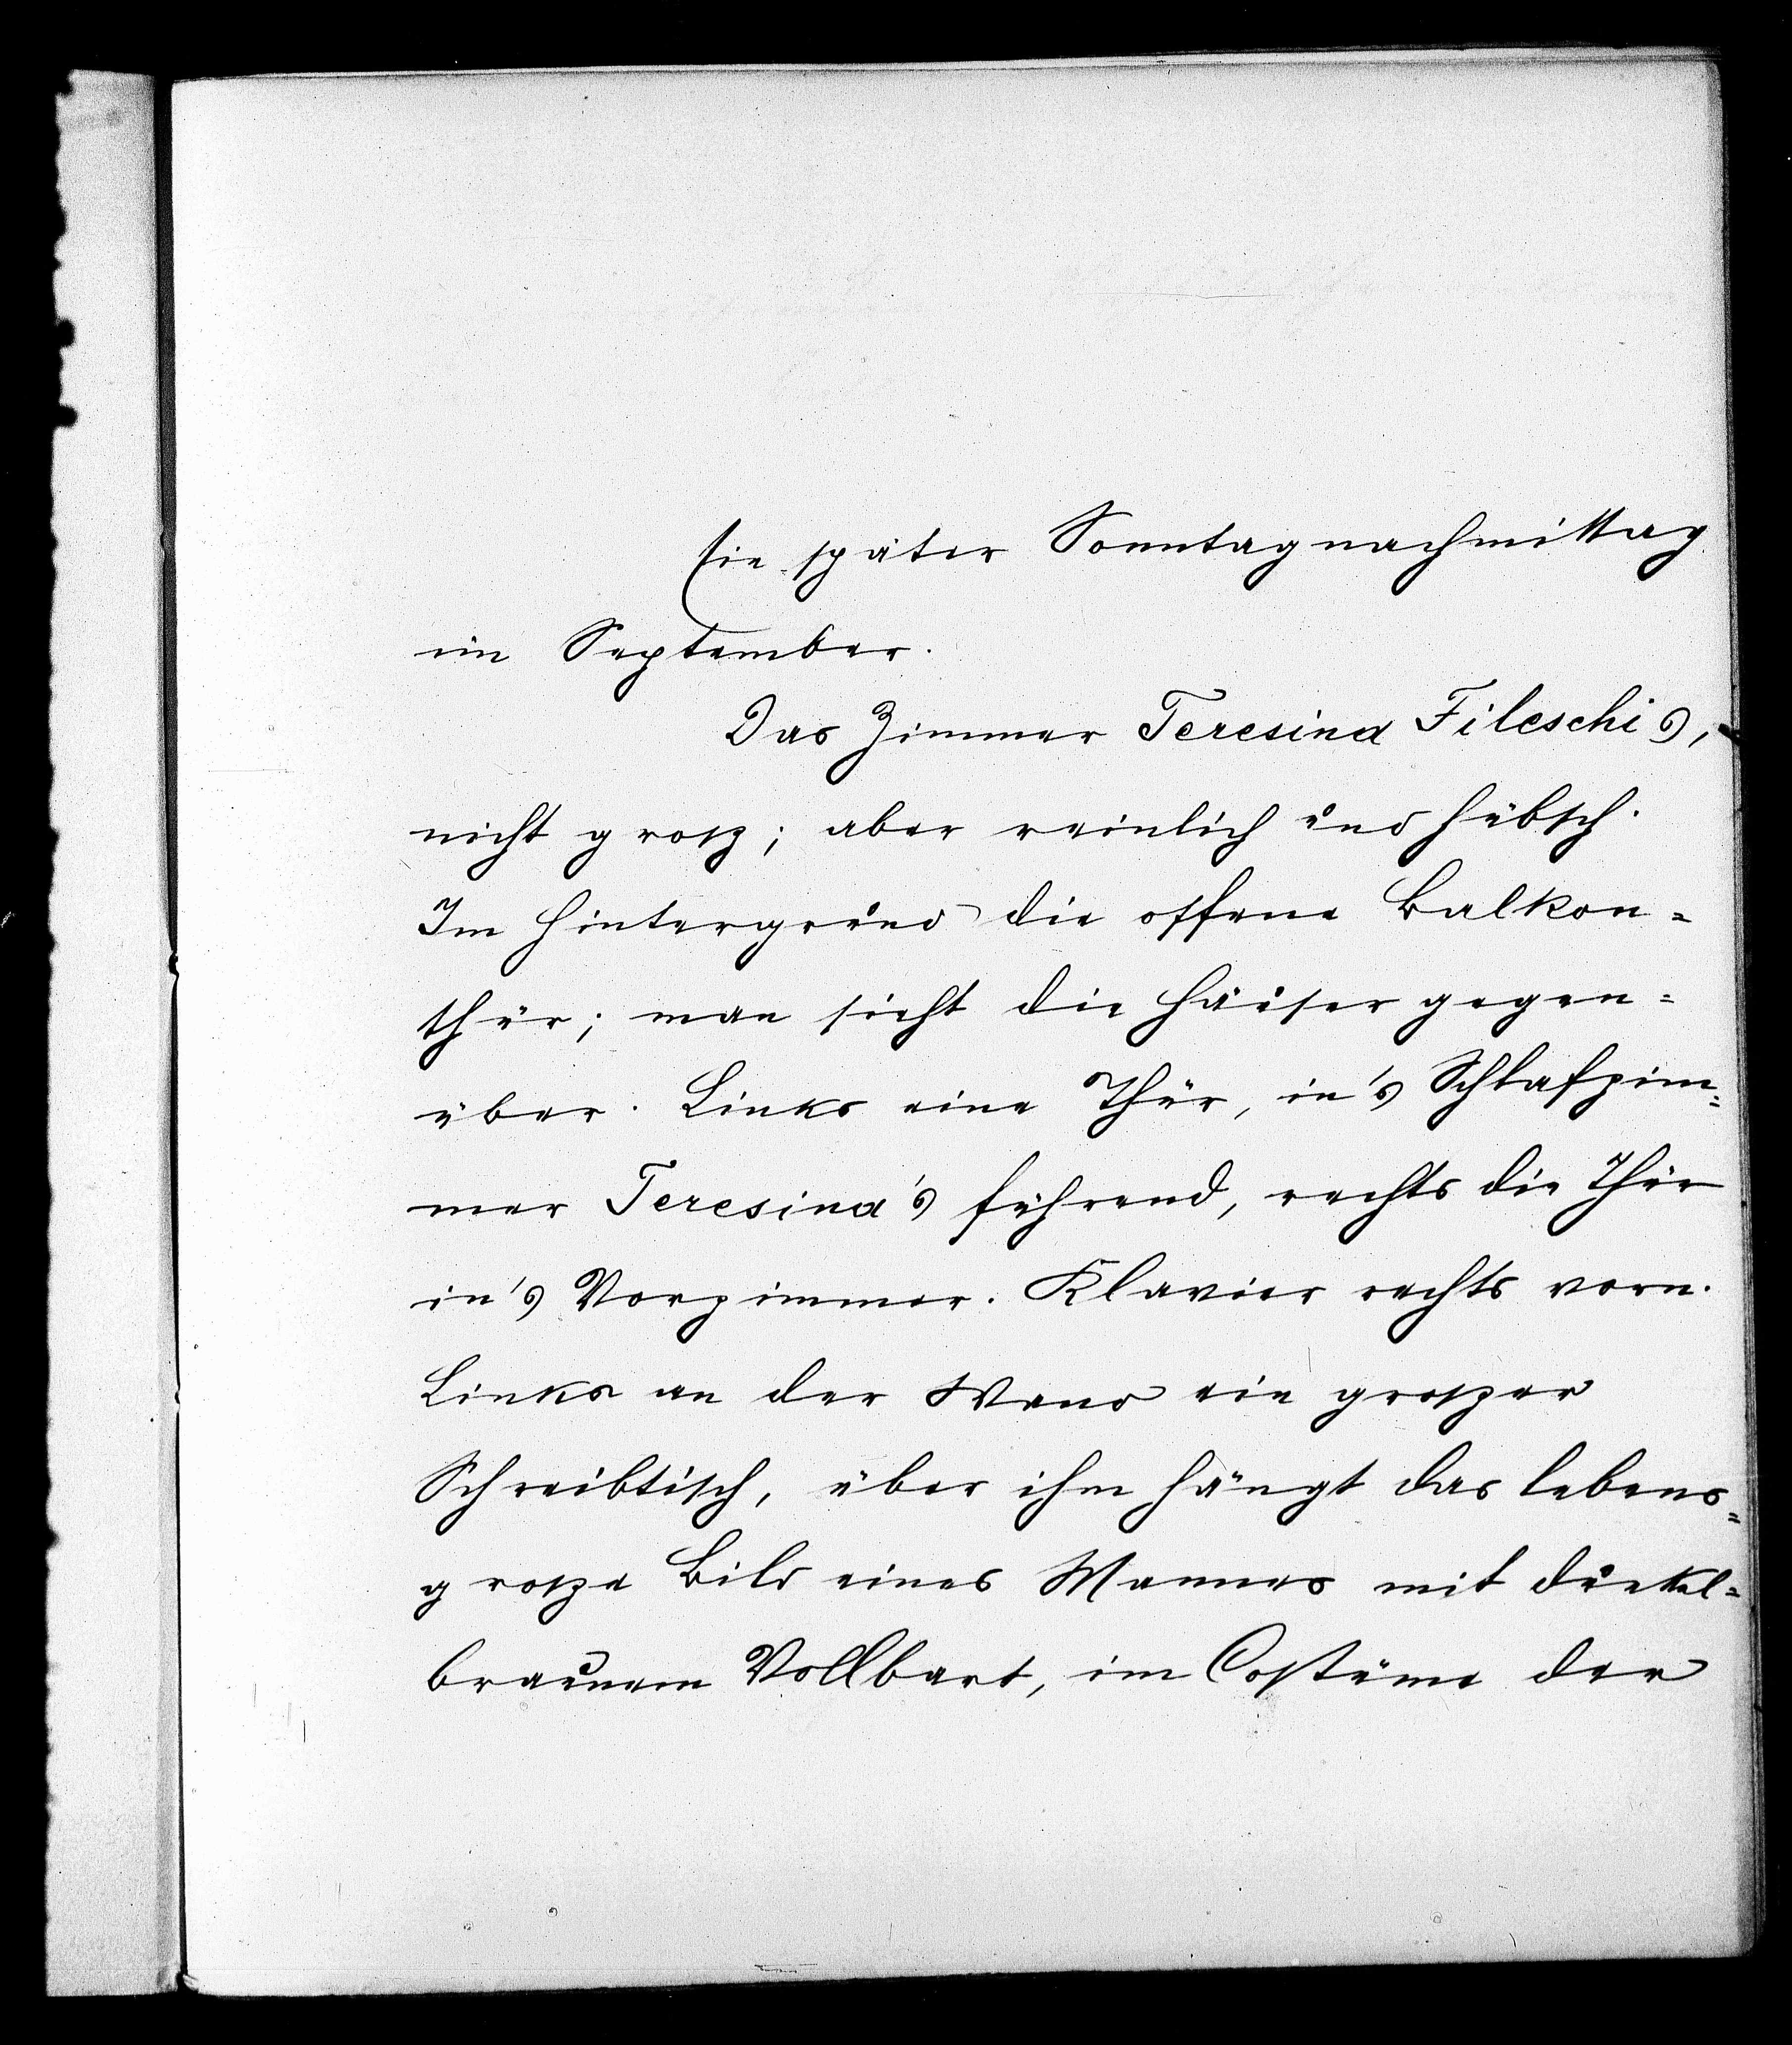 Ein später Sonntagnachmittag
im September.
Das Zimmer Teresina Fileschis,
nicht grosz; aber reinlich und hübsch.
Im Hintergrund die offene Balkon=
thür; man sieht die Häuser gegen=
über. Links eine Thür, in's Schlafzim=
mer Teresina's führend, rechts die Thür
in's Vorzimmer. Klavier rechts vorn.
Links an der Wand ein groszer
Schreibtisch, über ihm hängt das lebens=
grosze Bild eines Mannes mit dunkel=
braunem Vollbart, im Costüme der